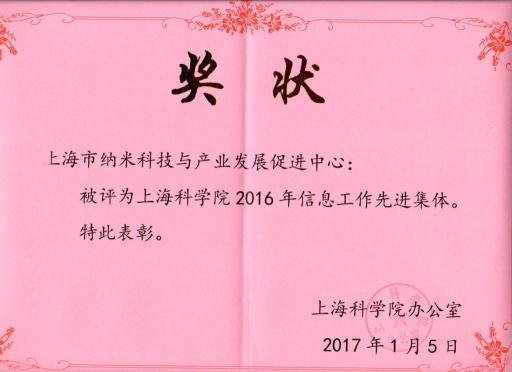 奖状
上海市纳米科技与产业发展促进中心：
被评为上海科学院2016年信息工作先进集体。
特此表彰。
上海科学院办公室
2017年1月5日